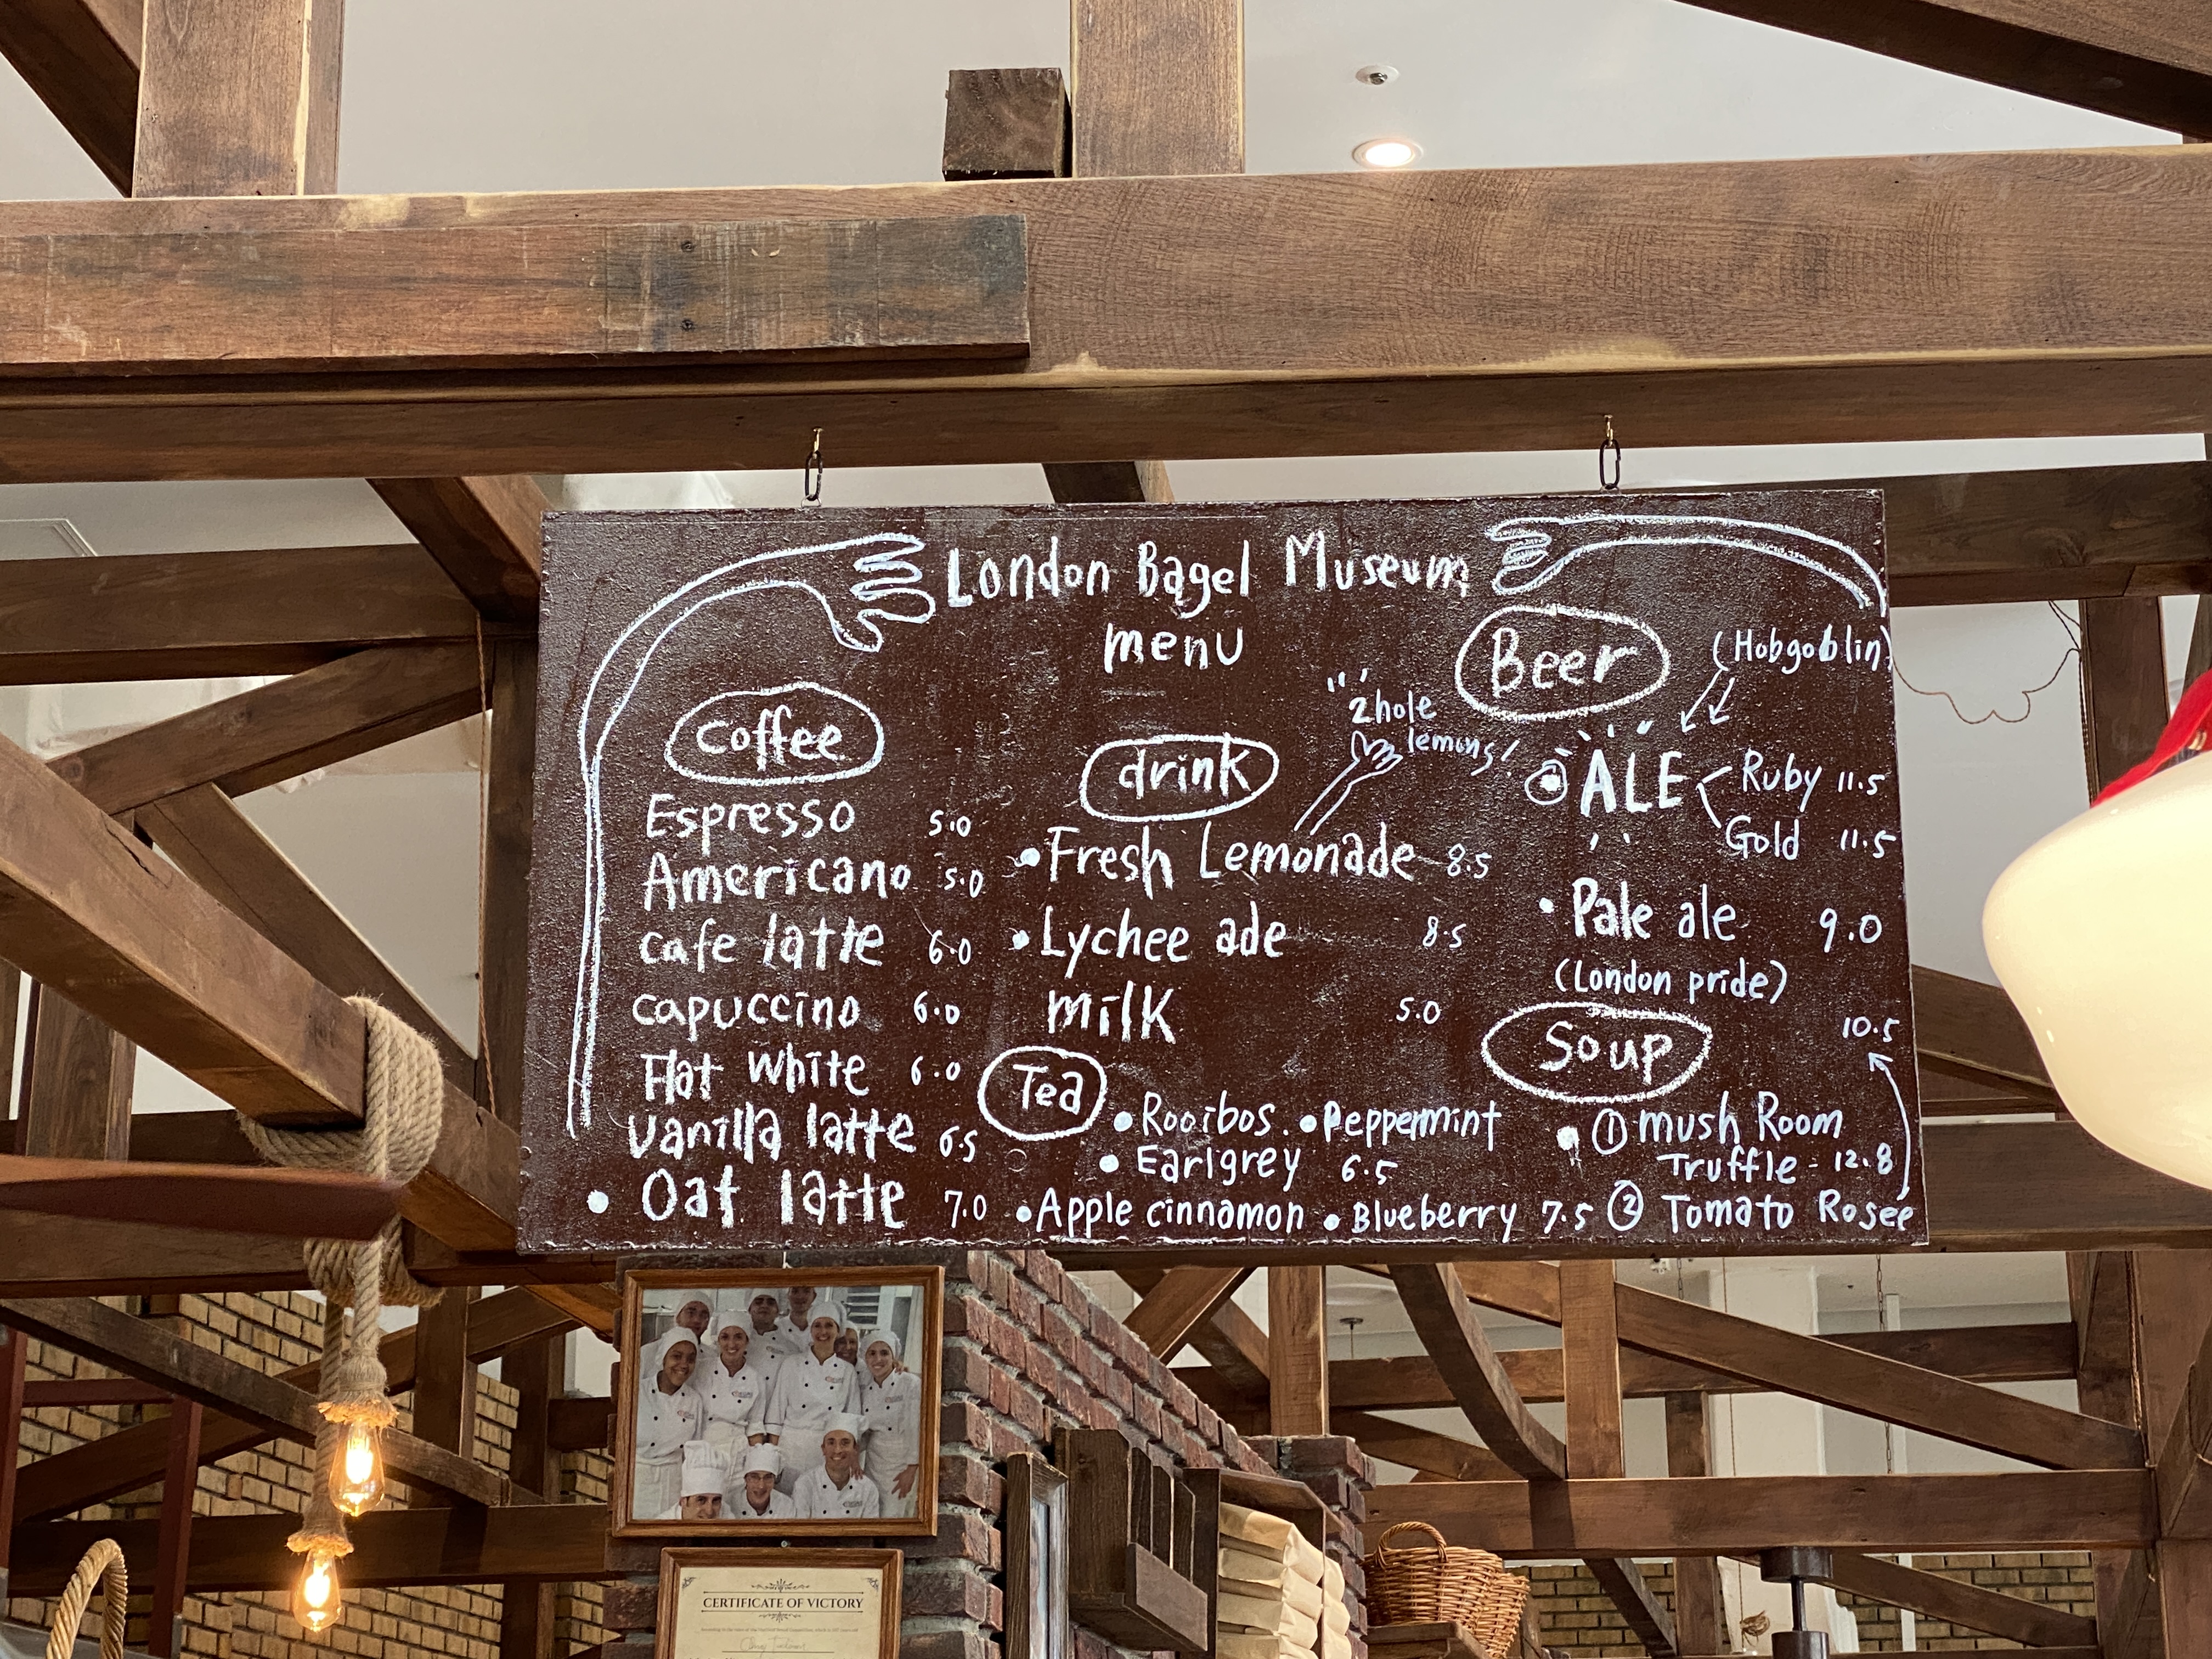 London Bagel Museum
menu
coffee
Espresso 5.0
Americano 5.0
cafe latte 6.0
capuccino 6.0
Flat white 6.0
vanilla latte 6.5
• Oat latte 7.0
drink
2hole
lemons!
• Fresh Lemonade 8.5
• Lychee ade 8.5
milk 5.0
Tea
• Rooibos. • Peppermint
• Earlgrey 6.5
• Apple cinnamon • Blueberry 7.5
Beer
(Hobgoblin)
ALE
Ruby 11.5
Gold 11.5
• Pale ale 9.0
(London pride)
Soup
10.5
• ① mush Room
Truffle - 12.8
② Tomato Rosee
CERTIFICATE OF VICTORY